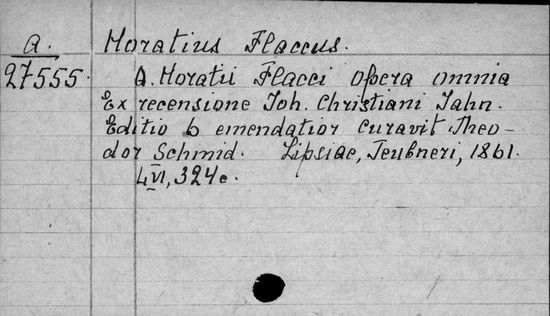 A.
27555.
Horatius Flaccus.
Q. Horatii Flacci opera omnia
Ex recensione Joh. Christiani Jahn.
Editio 6 emendatior curavit Theo-
dor Schmid. Lipsiae, Teubneri, 1861.
LVI, 324 c.